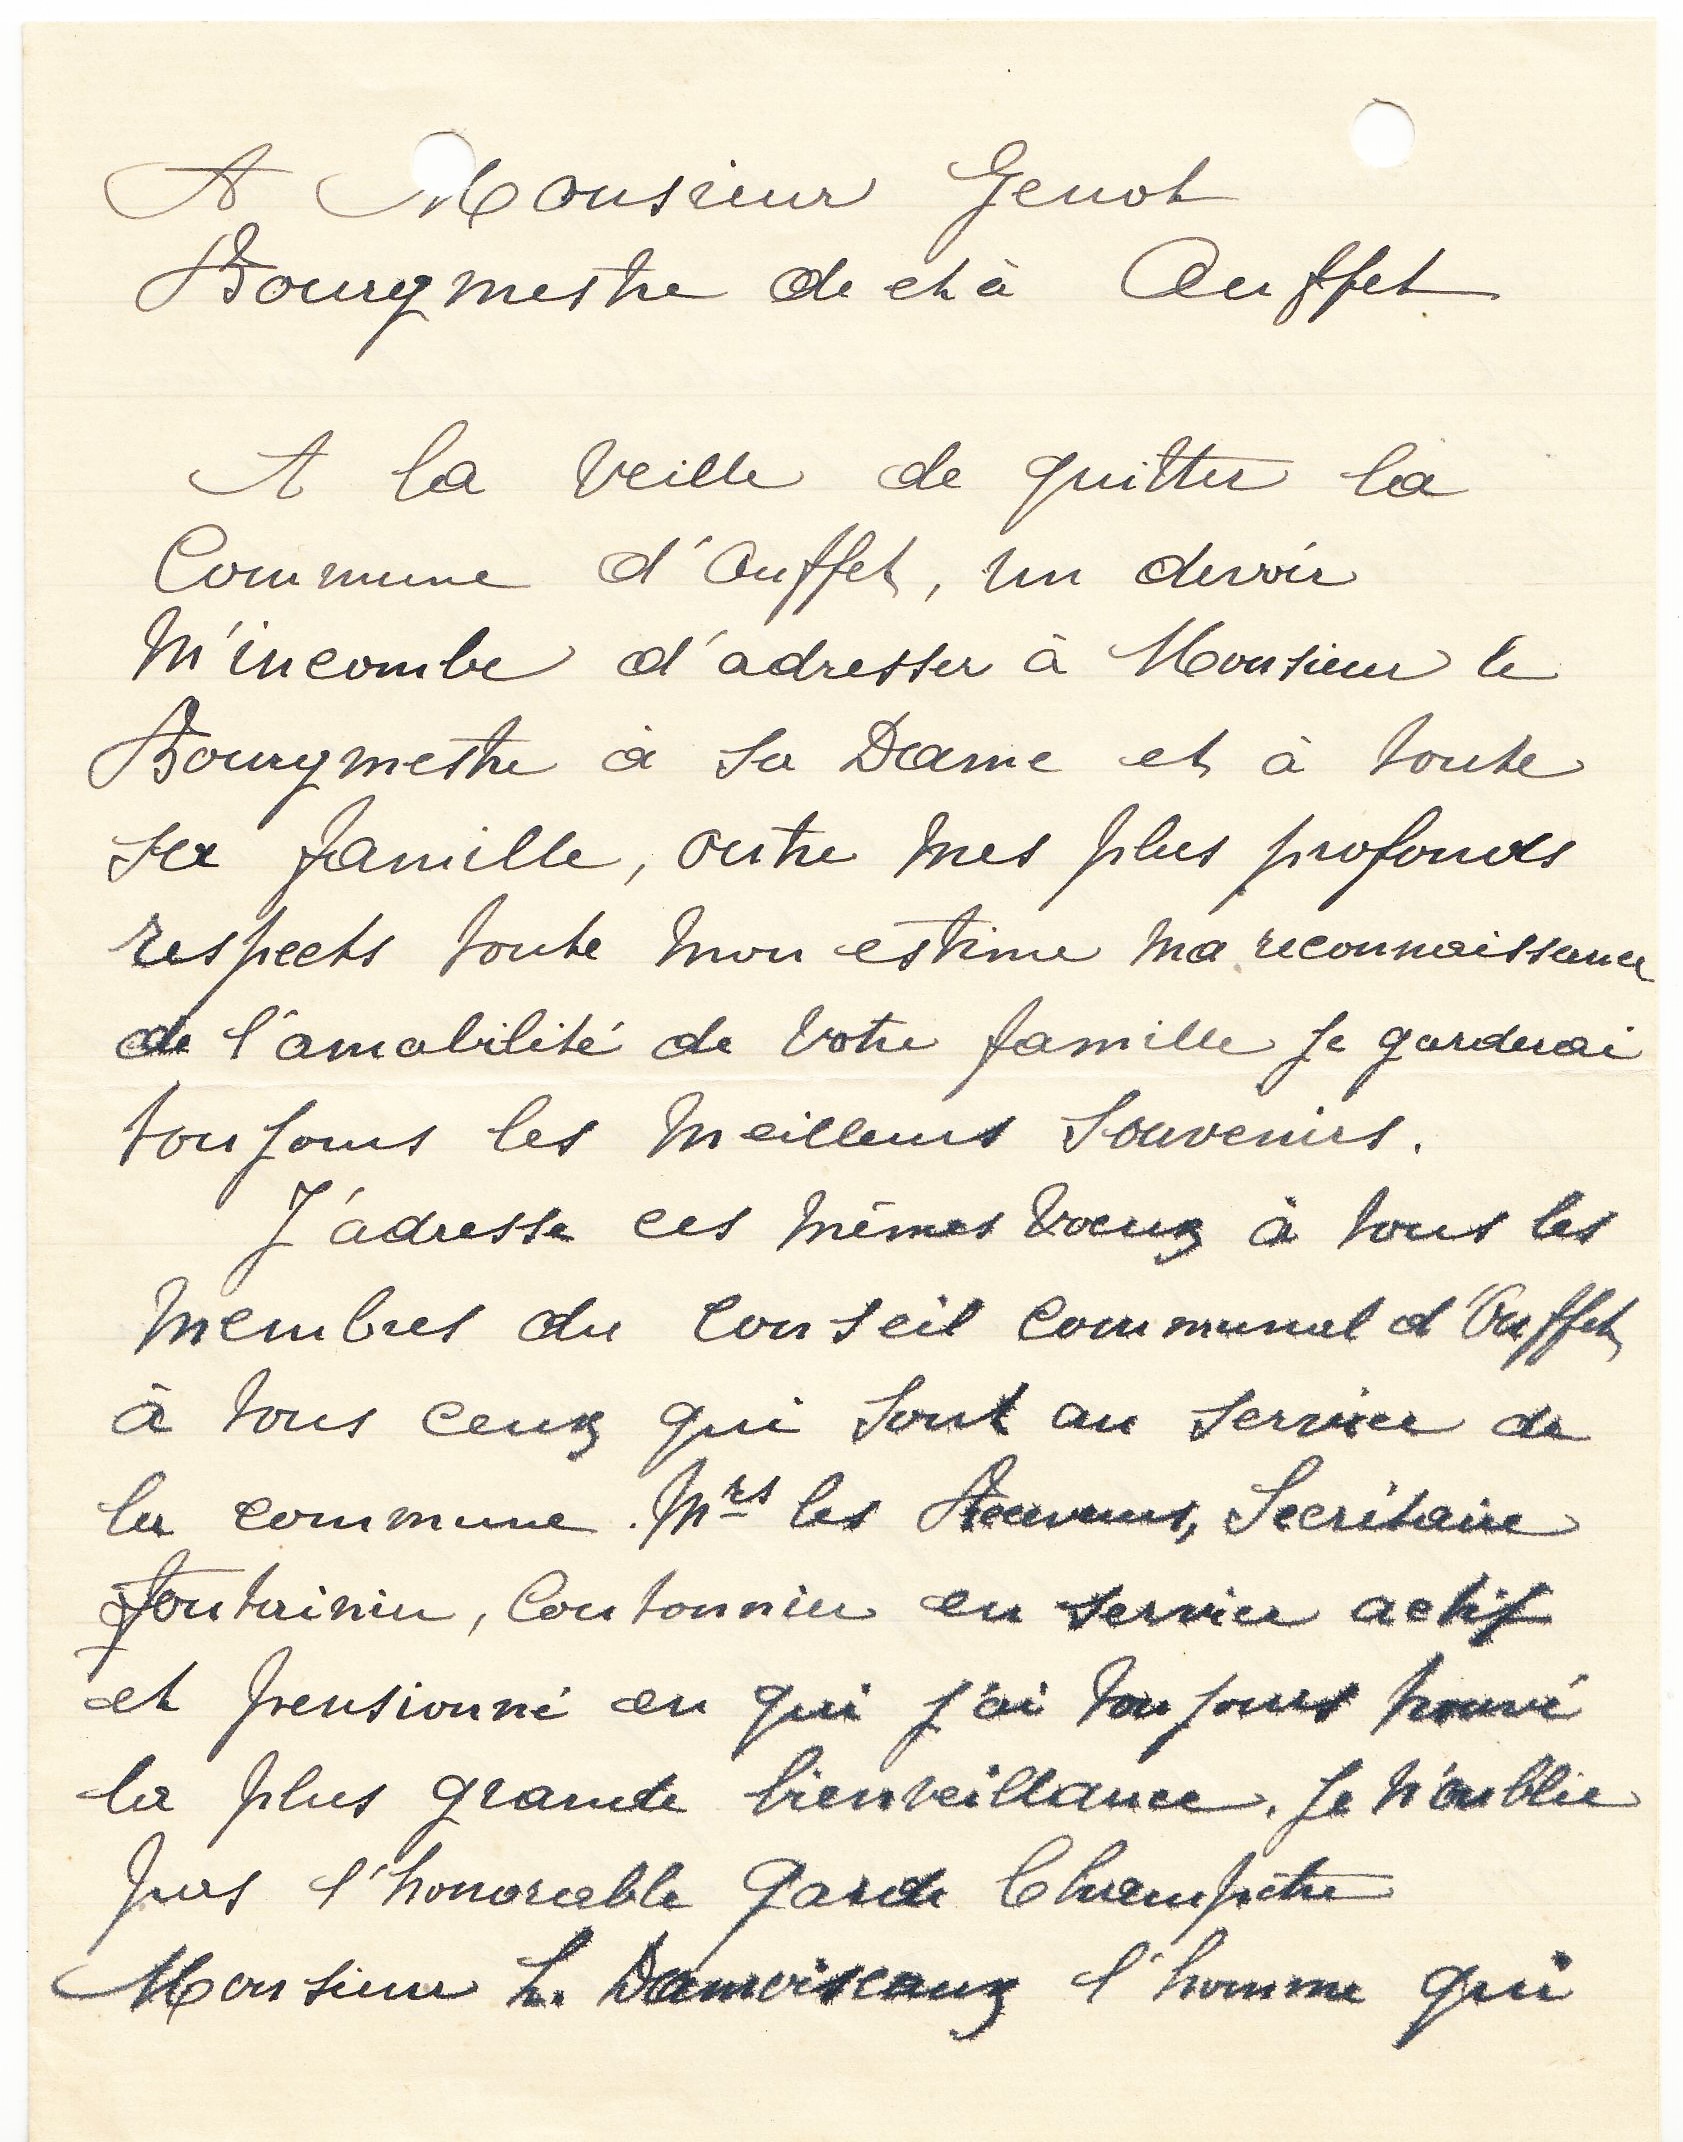 A Monsieur Genot
Bourgmestre de et à Ouffet
A la veille de quitter la
Commune d'Ouffet, un devoir
m'incombe d'adresser à Monsieur le
Bourgmestre à sa Dame et à toute
sa famille, outre mes plus profonds
respects toute mon estime ma reconnaissance
de l'amabilité de votre famille je garderai
toujours les meilleurs souvenirs.
J'adresse ces mêmes voeux à tous les
membres du conseil communal d'Ouffet
à tous ceux qui sont au service de
la commune. Mrs les Receveurs, Secrétaire
fontainier, Cantonnier en service actif
et pensionné en qui j'ai toujours trouvé
la plus grande bienveillance. Je n'oublie
pas l'honorable Garde Champêtre
Monsieur L. Damoiseaux l'homme qui